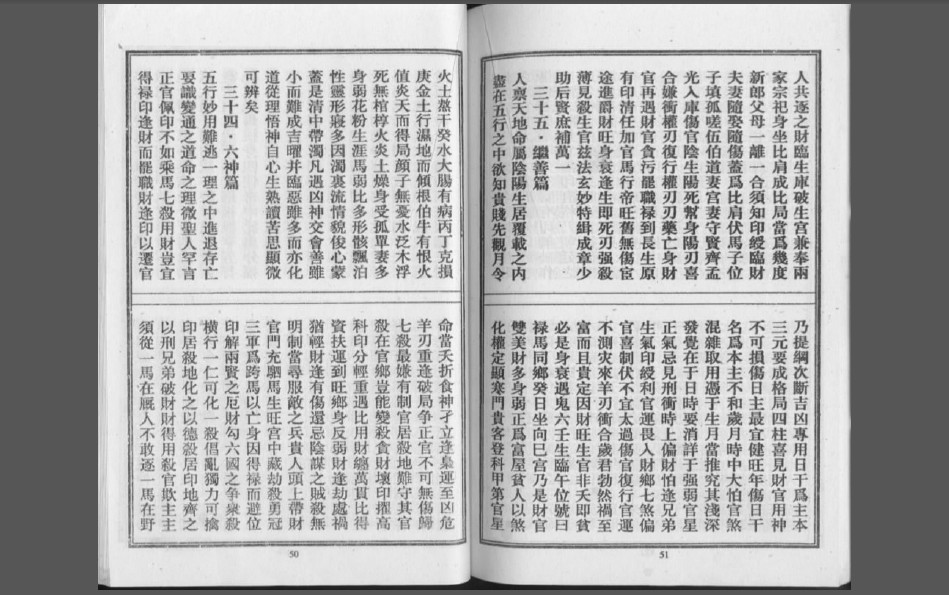 火土熬干癸水大腸有病丙丁克損
庚金土行濕地而傾根伯牛有恨火
值炎天而得局顏子無憂水泛木浮
死無棺椁火炎土燥身受孤單妻多
身弱花粉生涯馬弱比多形骸飄泊
性靈形寢多因濁裏流情貌俊心蒙
蓋是清中帶濁凡遇凶神交會善雖
小而難成吉曜并臨惡雖多而亦化
道從理悟神自心生熟讀苦思顯微
可辨矣
三十四·六神篇
五行妙用難逃一理之中進退存亡
要識變通之道命之理微聖人罕言
正官佩印不如乘馬七殺用財豈宜
得祿印逢財而罷職財逢印以遷官
命當夭折食神孑立逢梟運至凶危
羊刃重逢破局爭正官不可無傷歸
七殺最嫌有制官居殺地難守其官
殺在官鄉豈能變殺貪財壞印擢高
科印分輕重遇比用財纏萬貫比得
資扶運到旺鄉身反弱財逢劫處禍
猶輕財逢有傷還忌陰謀之賊殺無
明制當尋服敵之兵貴人頭上帶財
官門充駟馬生旺宮中藏劫殺勇冠
三軍爲跨馬以亡身因得祿而避位
印解兩賢之厄財勾六國之爭衆殺
橫行一仁可化一殺倡亂獨力可擒
印居殺地化之以德殺居印地齊之
以刑兄弟破財財得用殺官欺主主
須從一馬在厩人不敢逐一馬在野
50
人共逐之財臨生庫破生宮兼奉兩
家宗祀身坐比肩成比局當爲幾度
新郎父母一離一合須知印綬臨財
夫妻隨娶隨傷蓋爲比肩伏馬子位
子填孤嗟伍伯道妻宮妻守賢齊孟
光入庫傷官陰生陽死幫身陽刃喜
合嫌衝權刃復行權刃刃藥亡身財
官再遇財官貪污罷職祿到長生原
有印清任加官馬行帝旺舊無傷宦
途進爵財旺身衰逢生即死刃强殺
薄見殺生官兹法玄妙特緝成章少
助后賢庶補萬一
三十五·繼善篇
人禀天地命屬陰陽生居覆載之内
盡在五行之中欲知貴賤先觀月令
乃提綱次斷吉凶專用日干爲主本
三元要成格局四柱喜見財官用神
不可損傷日主最宜健旺年傷日干
名爲本主不和歲月時中大怕官煞
混雜取用憑于生月當推究其淺深
發覺在于日時要消詳于强弱官星
正氣忌見刑衝時上偏財怕逢兄弟
生氣印綬利官運畏入財鄉七煞偏
官喜制伏不宜太過傷官復行官運
不測灾來羊刃衝合歲君勃然禍至
富而且貴定因財旺生官非夭即貧
必是身衰遇鬼六壬生臨午位號曰
禄馬同鄉癸日坐向巳宮乃是財官
雙美財多身弱正爲富屋貧人以煞
化權定顯寒門貴客登科甲第官星
51